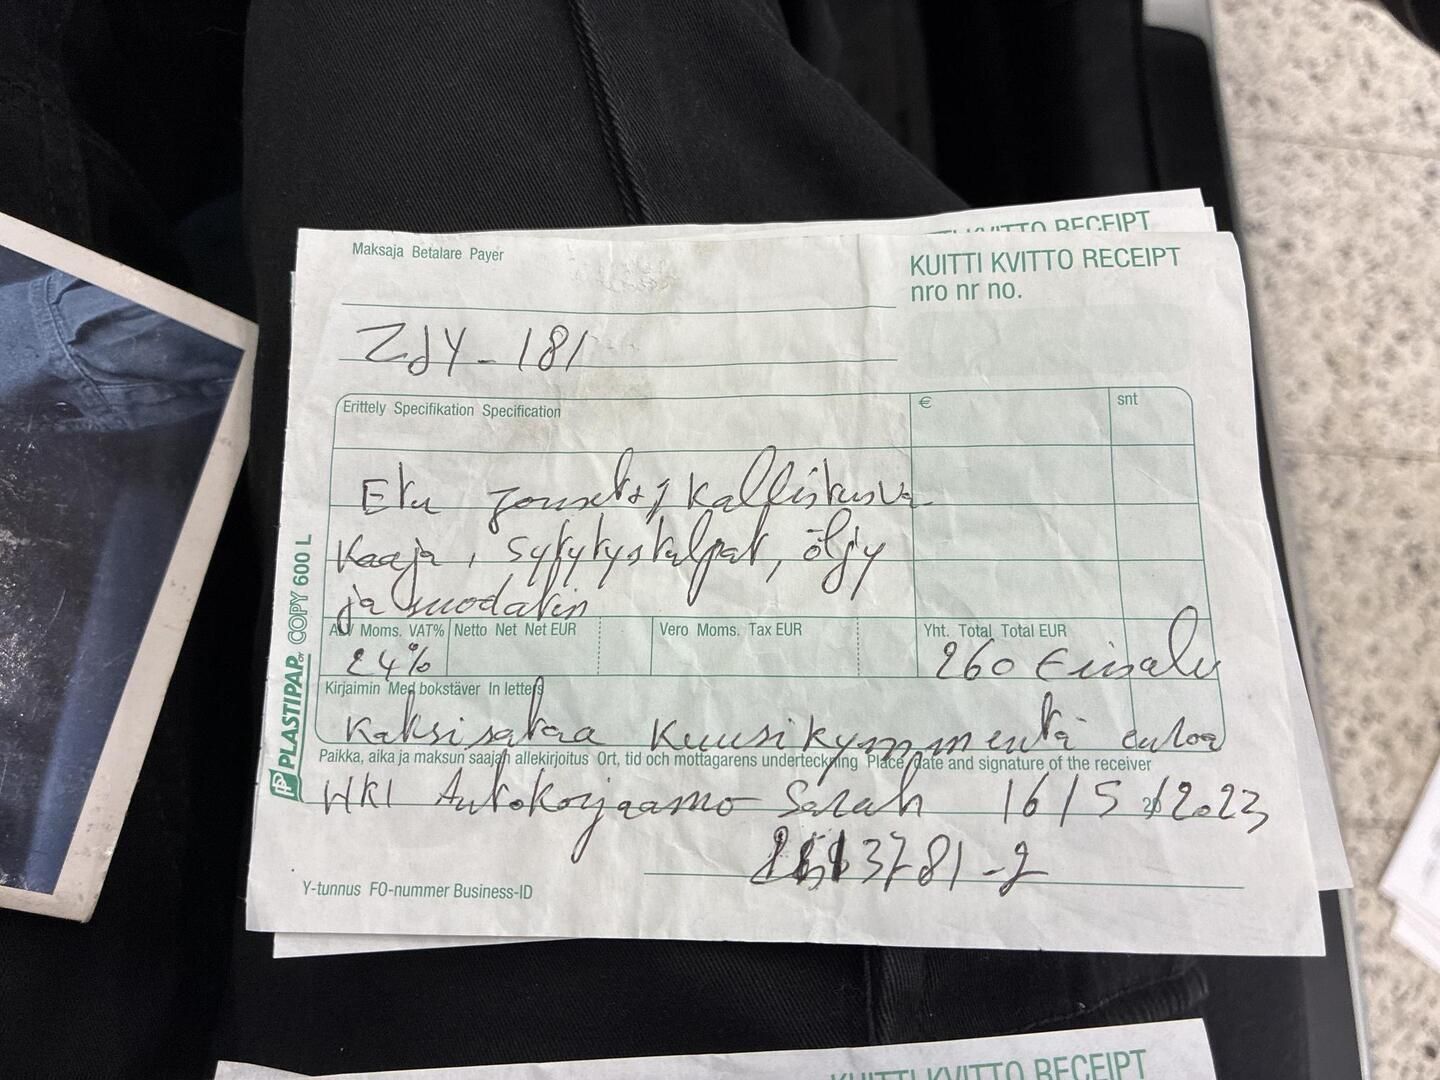 KVITTO RECEIPT
Maksaja Betalare Payer
KUITTI KVITTO RECEIPT
nro nr no.
ZJY-181
Erittely Specifikation Specification
€
snt
Etu jouset, kallistuksva
kaaja, sytytystulpat, öljy
ja suodatin
Moms. VAT%
Netto Net Net EUR
Vero Moms. Tax EUR
Yht. Total Total EUR
24%
260
Kirjaimin Med bokstäver In letters
Kaksisataa Kuusikymmentä euroa
Paikka, aika ja maksun saajan allekirjoitus Ort, tid och mottagarens underteckning Place, date and signature of the receiver
HKI Autokorjaamo Sarah 16/5 20/2023
3781-2
Y-tunnus FO-nummer Business-ID
PLASTIPAP OY COPY 600 L
KUITTI KVITTO RECEIPT